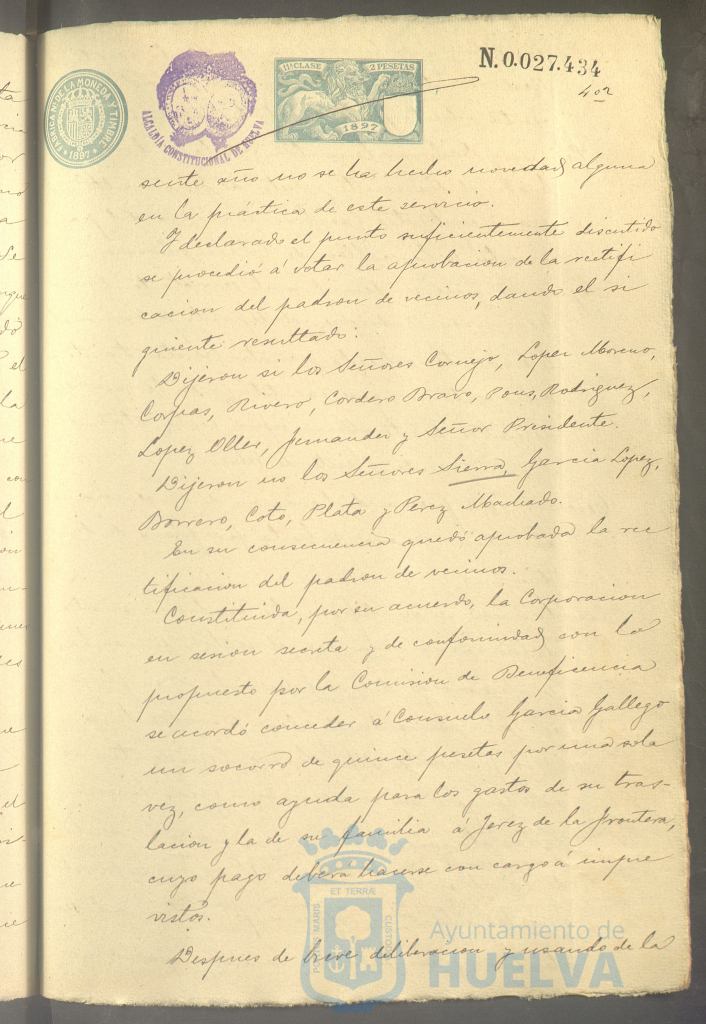 FABRICA DE LA MONEDA Y TIMBRE
*1897*
ALCALDÍA CONSTITUCIONAL DE HUELVA
11ª CLASE 2 PESETAS
1897
N.0.027.434
sente año no se ha hecho novedad alguna
en la práctica de este servicio.
Y declarado el punto suficientemente discutido
se procedió á votar la aprobacion de la rectifi
cacion del padron de vecinos, dando el si
guiente resultado:
Dijeron si los Señores Cornejo, Lopez Moreno,
Corpas, Rivero, Cordero Bravo, Pons, Rodriguez,
Lopez Oller, Jernandez y Señor Presidente.
Dijeron no los Señores Sierra, Garcia Lopez,
Borrero, Coto, Plata y Perez Machado.
En su consecuencia quedó aprobada la rec
tificacion del padron de vecinos.
Constituida, por su acuerdo, la Corporacion
en sesion secreta y de conformidad con lo
propuesto por la Comision de Beneficencia
se acordó conceder á Consuelo Garcia Gallego
un socorro de quince pesetas por una sola
vez, como ayuda para los gastos de su tras-
lacion y la de su familia á Jerez de la Frontera,
cuyo pago deberá hacerse con cargo á impre
vistos.
Despues de breve deliberacion y usando de la
PORTUS MARIS ET TERRÆ CUSTODIA
Ayuntamiento de
HUELVA